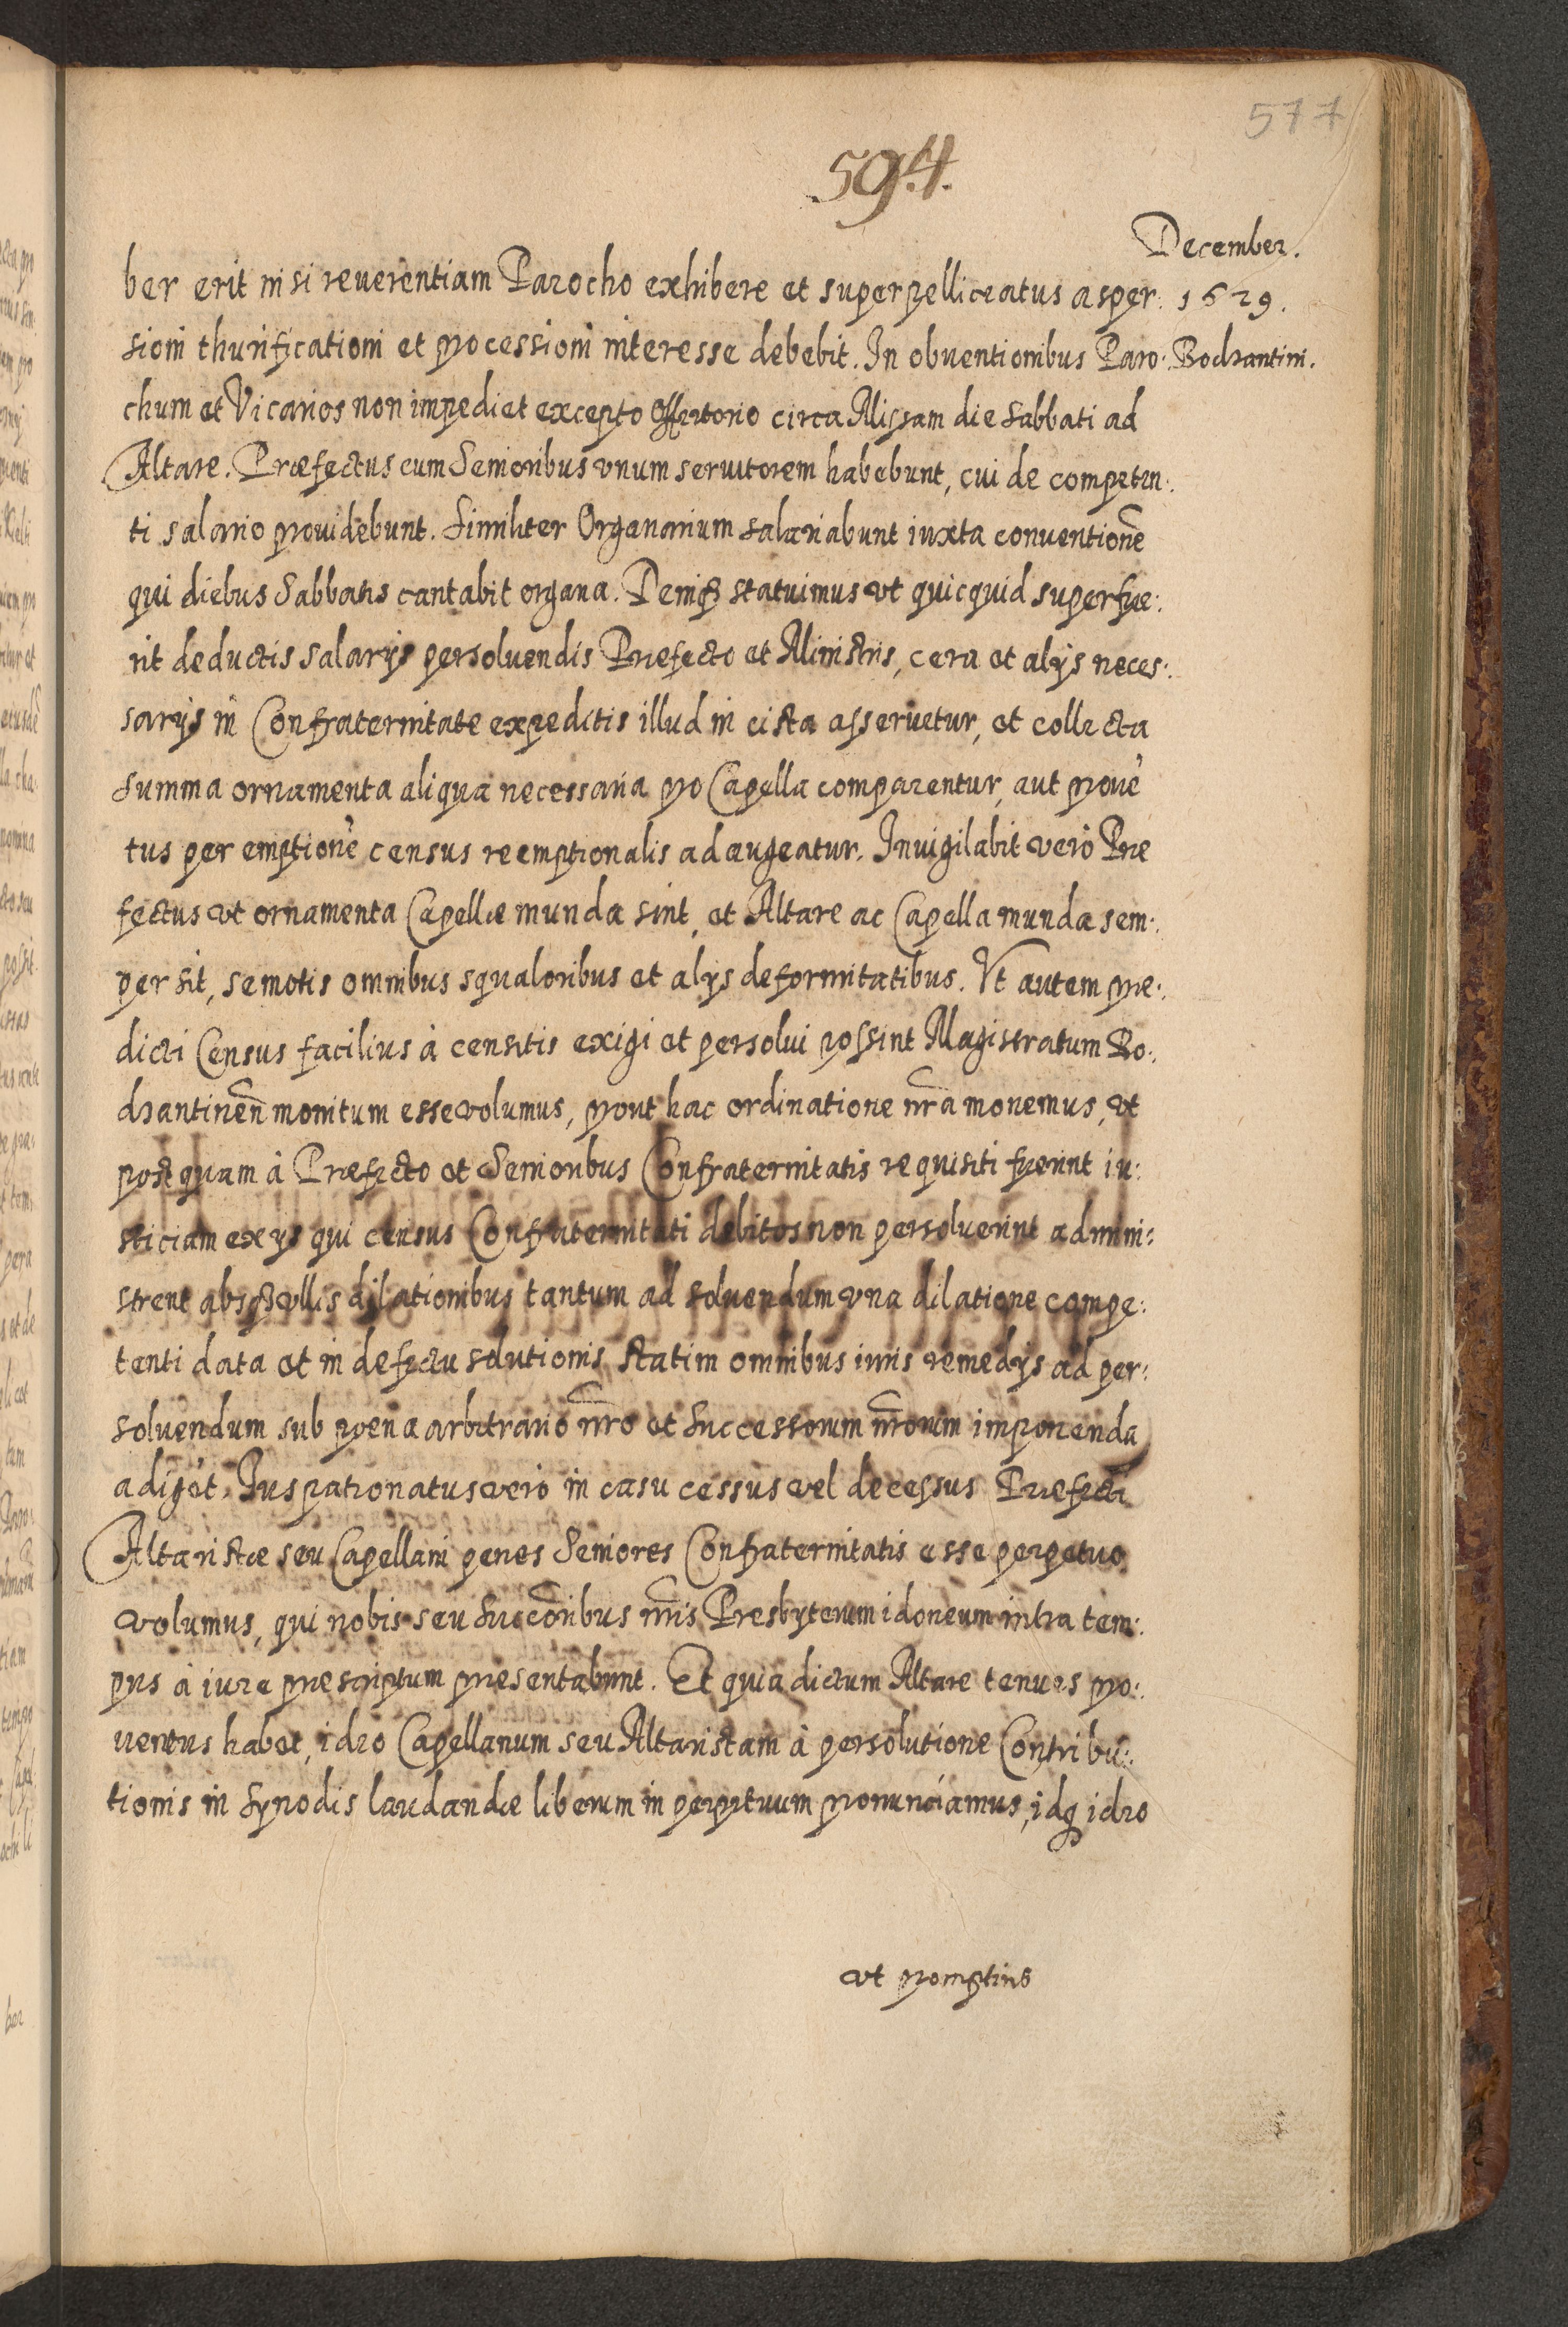 577
594.
December.
1629.
Bodzantini.
ber erit nisi reuerentiam Parocho exhibere et superpelliceatus asper:
sioni thurificationi et processioni interesse debebit. In obuentionibus Paro:
chum et Vicarios non impediet excepto Offertorio circa Missam die Sabbati ad
Altare. Præfectus cum Senioribus vnum seruitorem habebunt, cui de competen:
ti salario prouidebunt. Similiter Organarium salariabunt iuxta conuentionē
qui diebus Sabbatis cantabit organa. Deniq̃ statuimus vt quicquid superfue:
rit deductis salarijs persoluendis Præfecto et Ministris, cera et alijs neces:
sarijs in Confraternitate expeditis illud in cista asseruetur, et collecta
summa ornamenta aliqua necessaria pro Capella comparentur, aut prouē
tus per emptionē census reemptionalis adaugeatur. Inuigilabit verò Præ
fectus vt ornamenta Capellæ munda sint, et Altare ac Capella munda sem:
per sit, semotis omnibus squaloribus et alijs deformitatibus. Vt autem præ:
dicti Census facilius à censitis exigi et persolui possint Magistratum Bo:
dzantineñ monitum esse volumus, prout hac ordinatione nr̃a monemus, vt
postquam à Præfecto et Senioribus Confraternitatis requisiti fuerint iu:
sticiam ex ijs qui census Confraternitati debitos non persoluerint admini:
strent absq̃ vllis dilationibus tantum ad soluendum vna dilatione compe:
tenti data et in defectu solutionis statim omnibus iuris remedijs ad per:
soluendum sub poena arbitrario nr̃o et Successorum nr̃orum imponenda
adigat. Ius patronatus verò in casu cessus vel decessus Præfecti
Altaristæ seu Capellani penes Seniores Confraternitatis esse perpetuo
volumus, qui nobis seu Succõribus nr̃is Presbyterum idoneum intra tem:
pus à iure præscriptum præsentabunt. Et quia dictum Altare tenues pro:
uentus habet, ideo Capellanum seu Altaristam à persolutione Contribu:
tionis in Synodis laudandæ liberum in perpetuum pronunciamus, idq̃ ideo
vt promptius